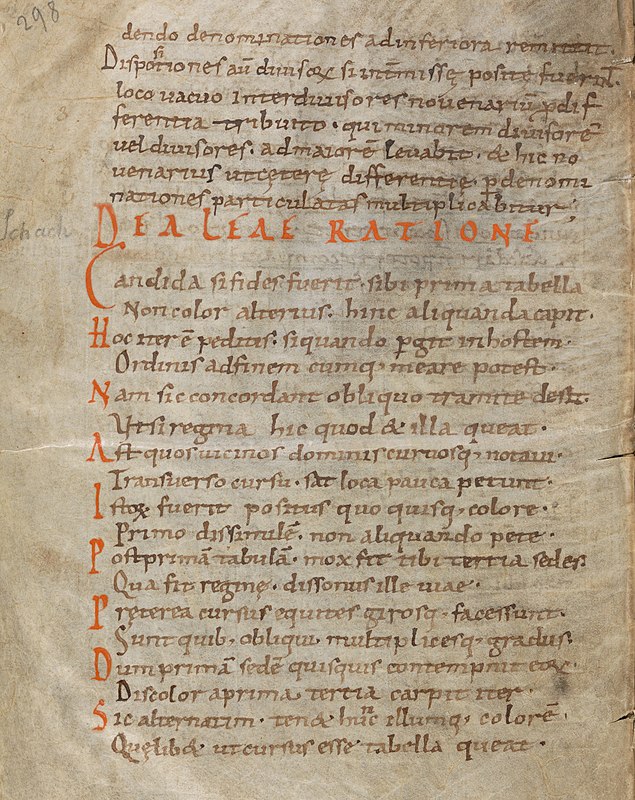 298
dendo denominationes ad inferiora remittit.
Dispotiones aū diuisoꝝ si intmissę positę fuerint.
loco uacuo inter diuisores nouenariū p dif
ferentia tribuito. qui minorem diuisorē
uel diuisores. ad maiorē leuabit. & hic no
uenarius ut cęterę differentię p denomi
nationes particulatas multiplicabitur;
Schach
DE ALEAE RATIONE
Candida si fides fuerit. sibi prima tabella
Non color alterius. hinc aliquanda capit.
Hoc iter ē peditis. si quando pgit in hostem.
Ordinis ad finem cumq; meare potest.
Nam sic concordant obliquo tramite desti.
Ut si regina hic quod & illa queat.
Ast quos uicinos dominis curuosq; notaui.
Transuerso cursu. sat loca pauca petunt.
Istoꝝ fuerit positus quo quisq; colore.
Primo dissimulē. non aliquando pete.
Post primā tabulā. mox fit tibi tertia sedes.
Qua fit regine. dissonus ille uiae.
Pręterea cursus equites girosq; facessunt.
Sunt quib; obliqui multiplicesq; gradus.
Dum primā sedē quisquis contempnit eoꝝ.
Discolor a prima tertia carpit iter.
Sic alternatim. tenet hunc illumq; colorē.
Quęlib& ut cursus esse tabella queat.